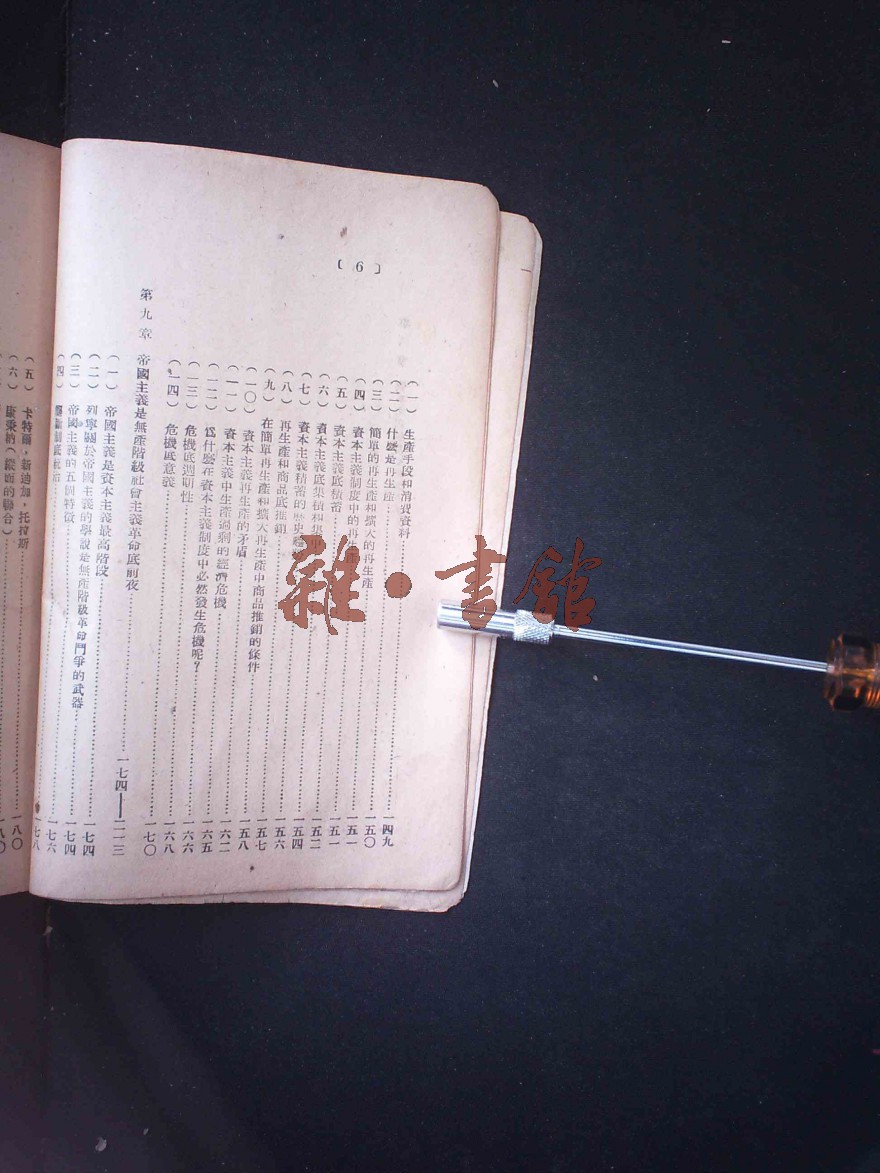 〔 6 〕
(一) 生產手段和消費資料……一四九
(二) 什麼是再生產……一五〇
(三) 簡單的再生產和擴大的再生產……一五一
(四) 資本主義制度中的再生產……一五一
(五) 資本主義底積蓄……一五二
(六) 資本主義底集積和集中……一五四
(七) 資本主義積蓄的歷史……一五六
(八) 再生產和商品底推銷……一五七
(九) 在簡單再生產和擴大再生產中商品推銷的條件……一五八
(一〇) 資本主義再生產的矛盾……一六二
(一一) 資本主義中生產過剩的經濟危機……一六五
(一二) 爲什麼在資本主義制度中必然發生危機呢?……一六六
(一三) 危機底週期性……一六八
(一四) 危機底意義……一七〇
第九章 帝國主義是無產階級社會主義革命底前夜……一七四——二一三
(一) 帝國主義是資本主義最高階段……一七四
(二) 列寧關於帝國主義的學說是無產階級革命鬥爭的武器……一七四
(三) 帝國主義的五個特徵……一七六
(四) 底統治……一七八
(五) 卡特爾,新迪加,托拉斯……一八〇
(六) 康秉納(縱面的聯合)……一八〇
雜·書館